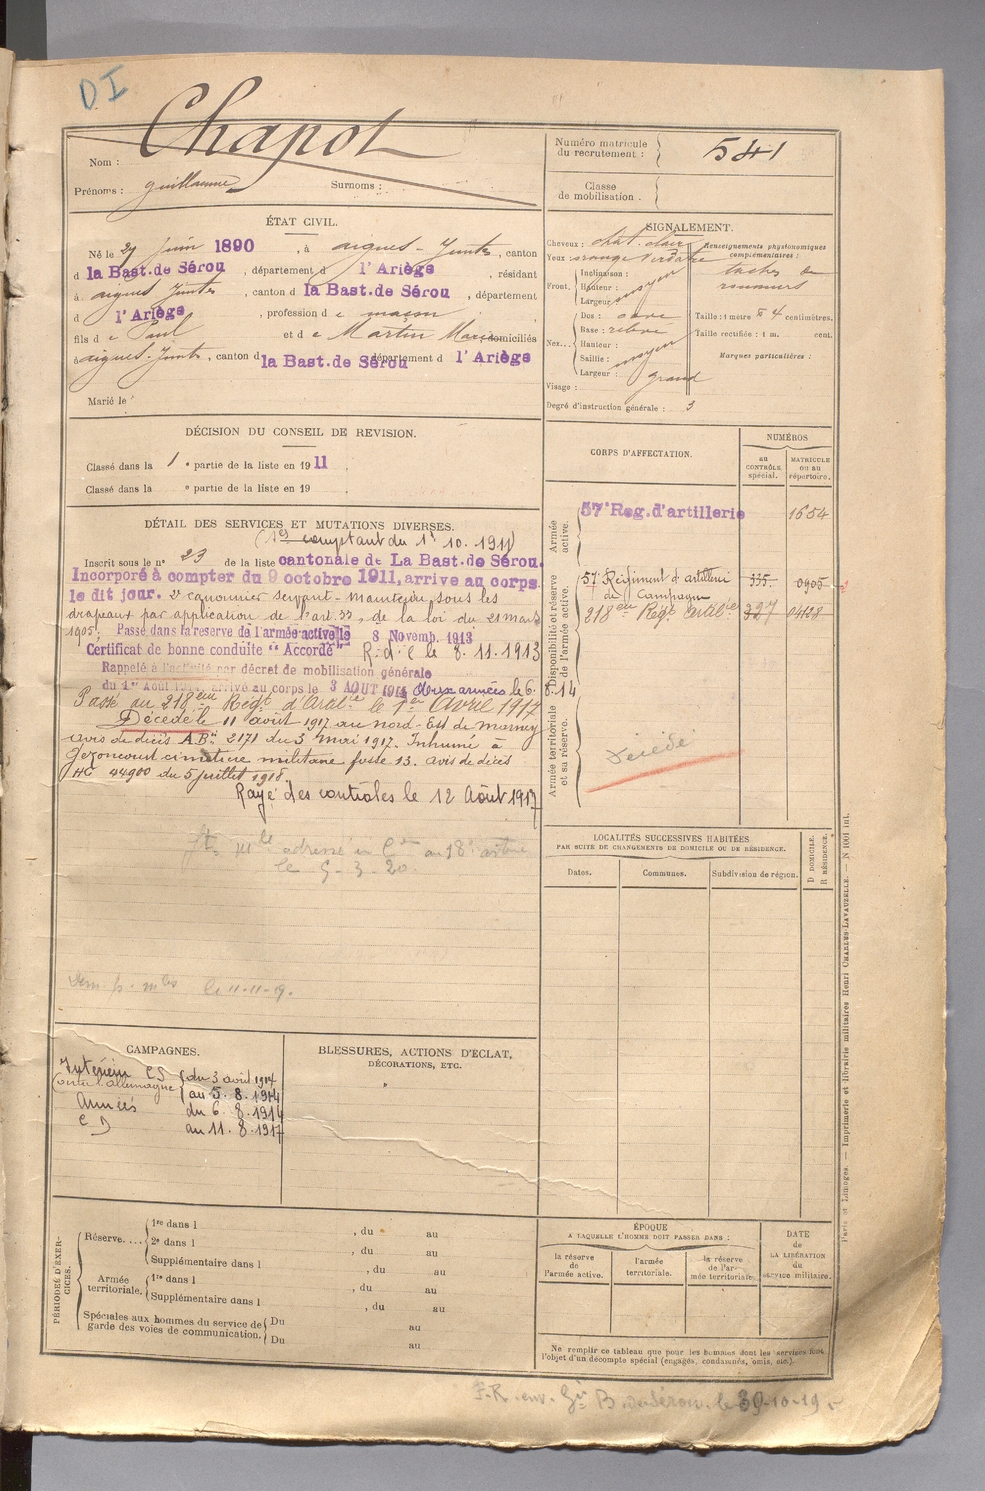 DI
Chapot
Nom :
Prénoms : Guillaume Surnoms :
Numéro matricule du recrutement : 541
Classe de mobilisation :
ÉTAT CIVIL.
Né le 29 Juin 1890, à Aigues-Juntes, canton
d la Bast.de Sérou, département d l'Ariège, résidant
à Aigues Juntes, canton d la Bast.de Sérou, département
d l'Ariège, profession de maçon
fils de Paul et de Martin Marie domiciliés
à Aigues-Juntes, canton d la Bast.de Sérou département d l'Ariège
Marié le
SIGNALEMENT.
Cheveux : chât. clair
Yeux : orange verdâtre
Front. Inclinaison :
Hauteur : moyen
Largeur :
Nez... Dos : cave
Base : relevé
Hauteur :
Saillie : moyen
Largeur :
Visage : grand
Renseignements physionomiques complémentaires :
taches de rousseurs
Taille : 1 mètre 54 centimètres.
Taille rectifiée : 1 m. cent.
Marques particulières :
Degré d'instruction générale : 3
DÉCISION DU CONSEIL DE REVISION.
Classé dans la 1e partie de la liste en 1911.
Classé dans la e partie de la liste en 19 .
DÉTAIL DES SERVICES ET MUTATIONS DIVERSES.
(1er comptant du 1er 10. 1911)
Inscrit sous le n° 23 de la liste cantonale de La Bast.de Sérou.
Incorporé à compter du 9 octobre 1911, arrive au corps
le dit jour. 2e canonnier servant - Maintenu sous les
drapeaux par application de l'art 33, de la loi du 21 mars
1905. Passé dans la réserve de l'armée active le 8 Novemb. 1913
Certificat de bonne conduite "Accordé" R.d.C le 8.11.1913
Rappelé à l'activité par décret de mobilisation générale
du 1er Août 1914, arrivé au corps le 3 AOUT 1914 Aux armées le 6. 8.14
Passé au 218ème Régt d'Artie le 1er Avril 1917
Décédé le 11 août 1917 au Nord-Est de
avis de décès A.Bn 2171 du 3 mai 1917. Inhumé à
Gezoncourt cimetière militaire fosse 13. avis de décès
HC 44900 du 5 juillet 1918.
Rayé des contrôles le 12 Août 1917
le 5-3-20.
le 11-11-19.
CORPS D'AFFECTATION.
NUMÉROS
au CONTRÔLE spécial.
MATRICULE ou au répertoire.
Armée active.
57e Reg. d'artillerie 1654
Disponibilité et réserve de l'armée active.
57e Régiment d'artillerie de Campagne 335 0905
218eme Régt Artie 327 0428
Armée territoriale et sa réserve.
Décédé
LOCALITÉS SUCCESSIVES HABITÉES
PAR SUITE DE CHANGEMENTS DE DOMICILE OU DE RÉSIDENCE.
Dates.
Communes.
Subdivision de région.
D DOMICILE.
R RÉSIDENCE.
CAMPAGNES.
Intérieur CS du 3 août 1914
Contre l'Allemagne au 5. 8. 1914
Armées du 6. 8. 1914
CD au 11. 8. 1917
BLESSURES, ACTIONS D'ÉCLAT,
DÉCORATIONS, ETC.
"
PÉRIODES D'EXERCICES.
Réserve.... 1re dans l , du au
2e dans l , du au
Supplémentaire dans l , du au
Armée territoriale. 1re dans l , du au
Supplémentaire dans l , du au
Spéciales aux hommes du service de garde des voies de communication. Du au
Du au
ÉPOQUE
A LAQUELLE L'HOMME DOIT PASSER DANS :
la réserve de l'armée active.
l'armée territoriale.
la réserve de l'armée territoriale.
DATE de LA LIBÉRATION du service militaire.
Ne remplir ce tableau que pour les hommes dont les services font
l'objet d'un décompte spécial (engagés, condamnés, omis, etc.)
Paris et Limoges. — Imprimerie et librairie militaires Henri CHARLES-LAVAUZELLE. — N 1001 int.
F.R. env. Gie B. de Sérou. le 30-10-19